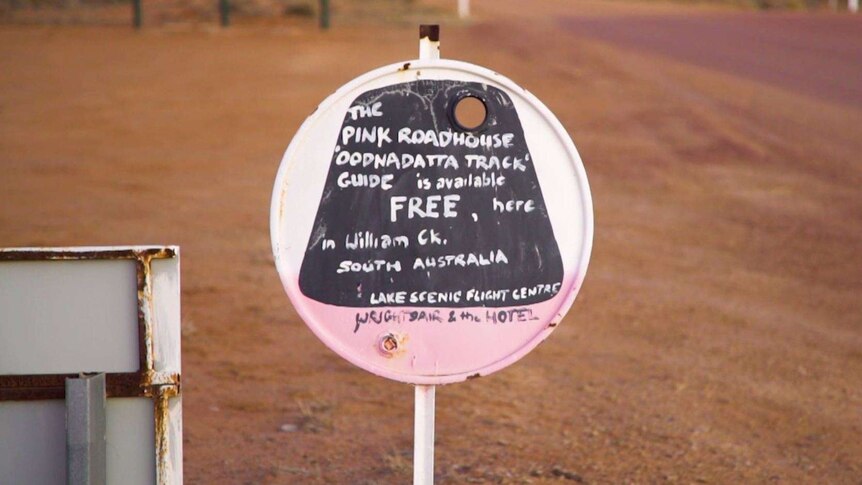 THE
PINK ROADHOUSE
'OODNADATTA TRACK'
GUIDE is available
FREE, here
in William Ck.
SOUTH AUSTRALIA
LAKE SCENIC FLIGHT CENTRE
WRIGHTSAIR & the HOTEL